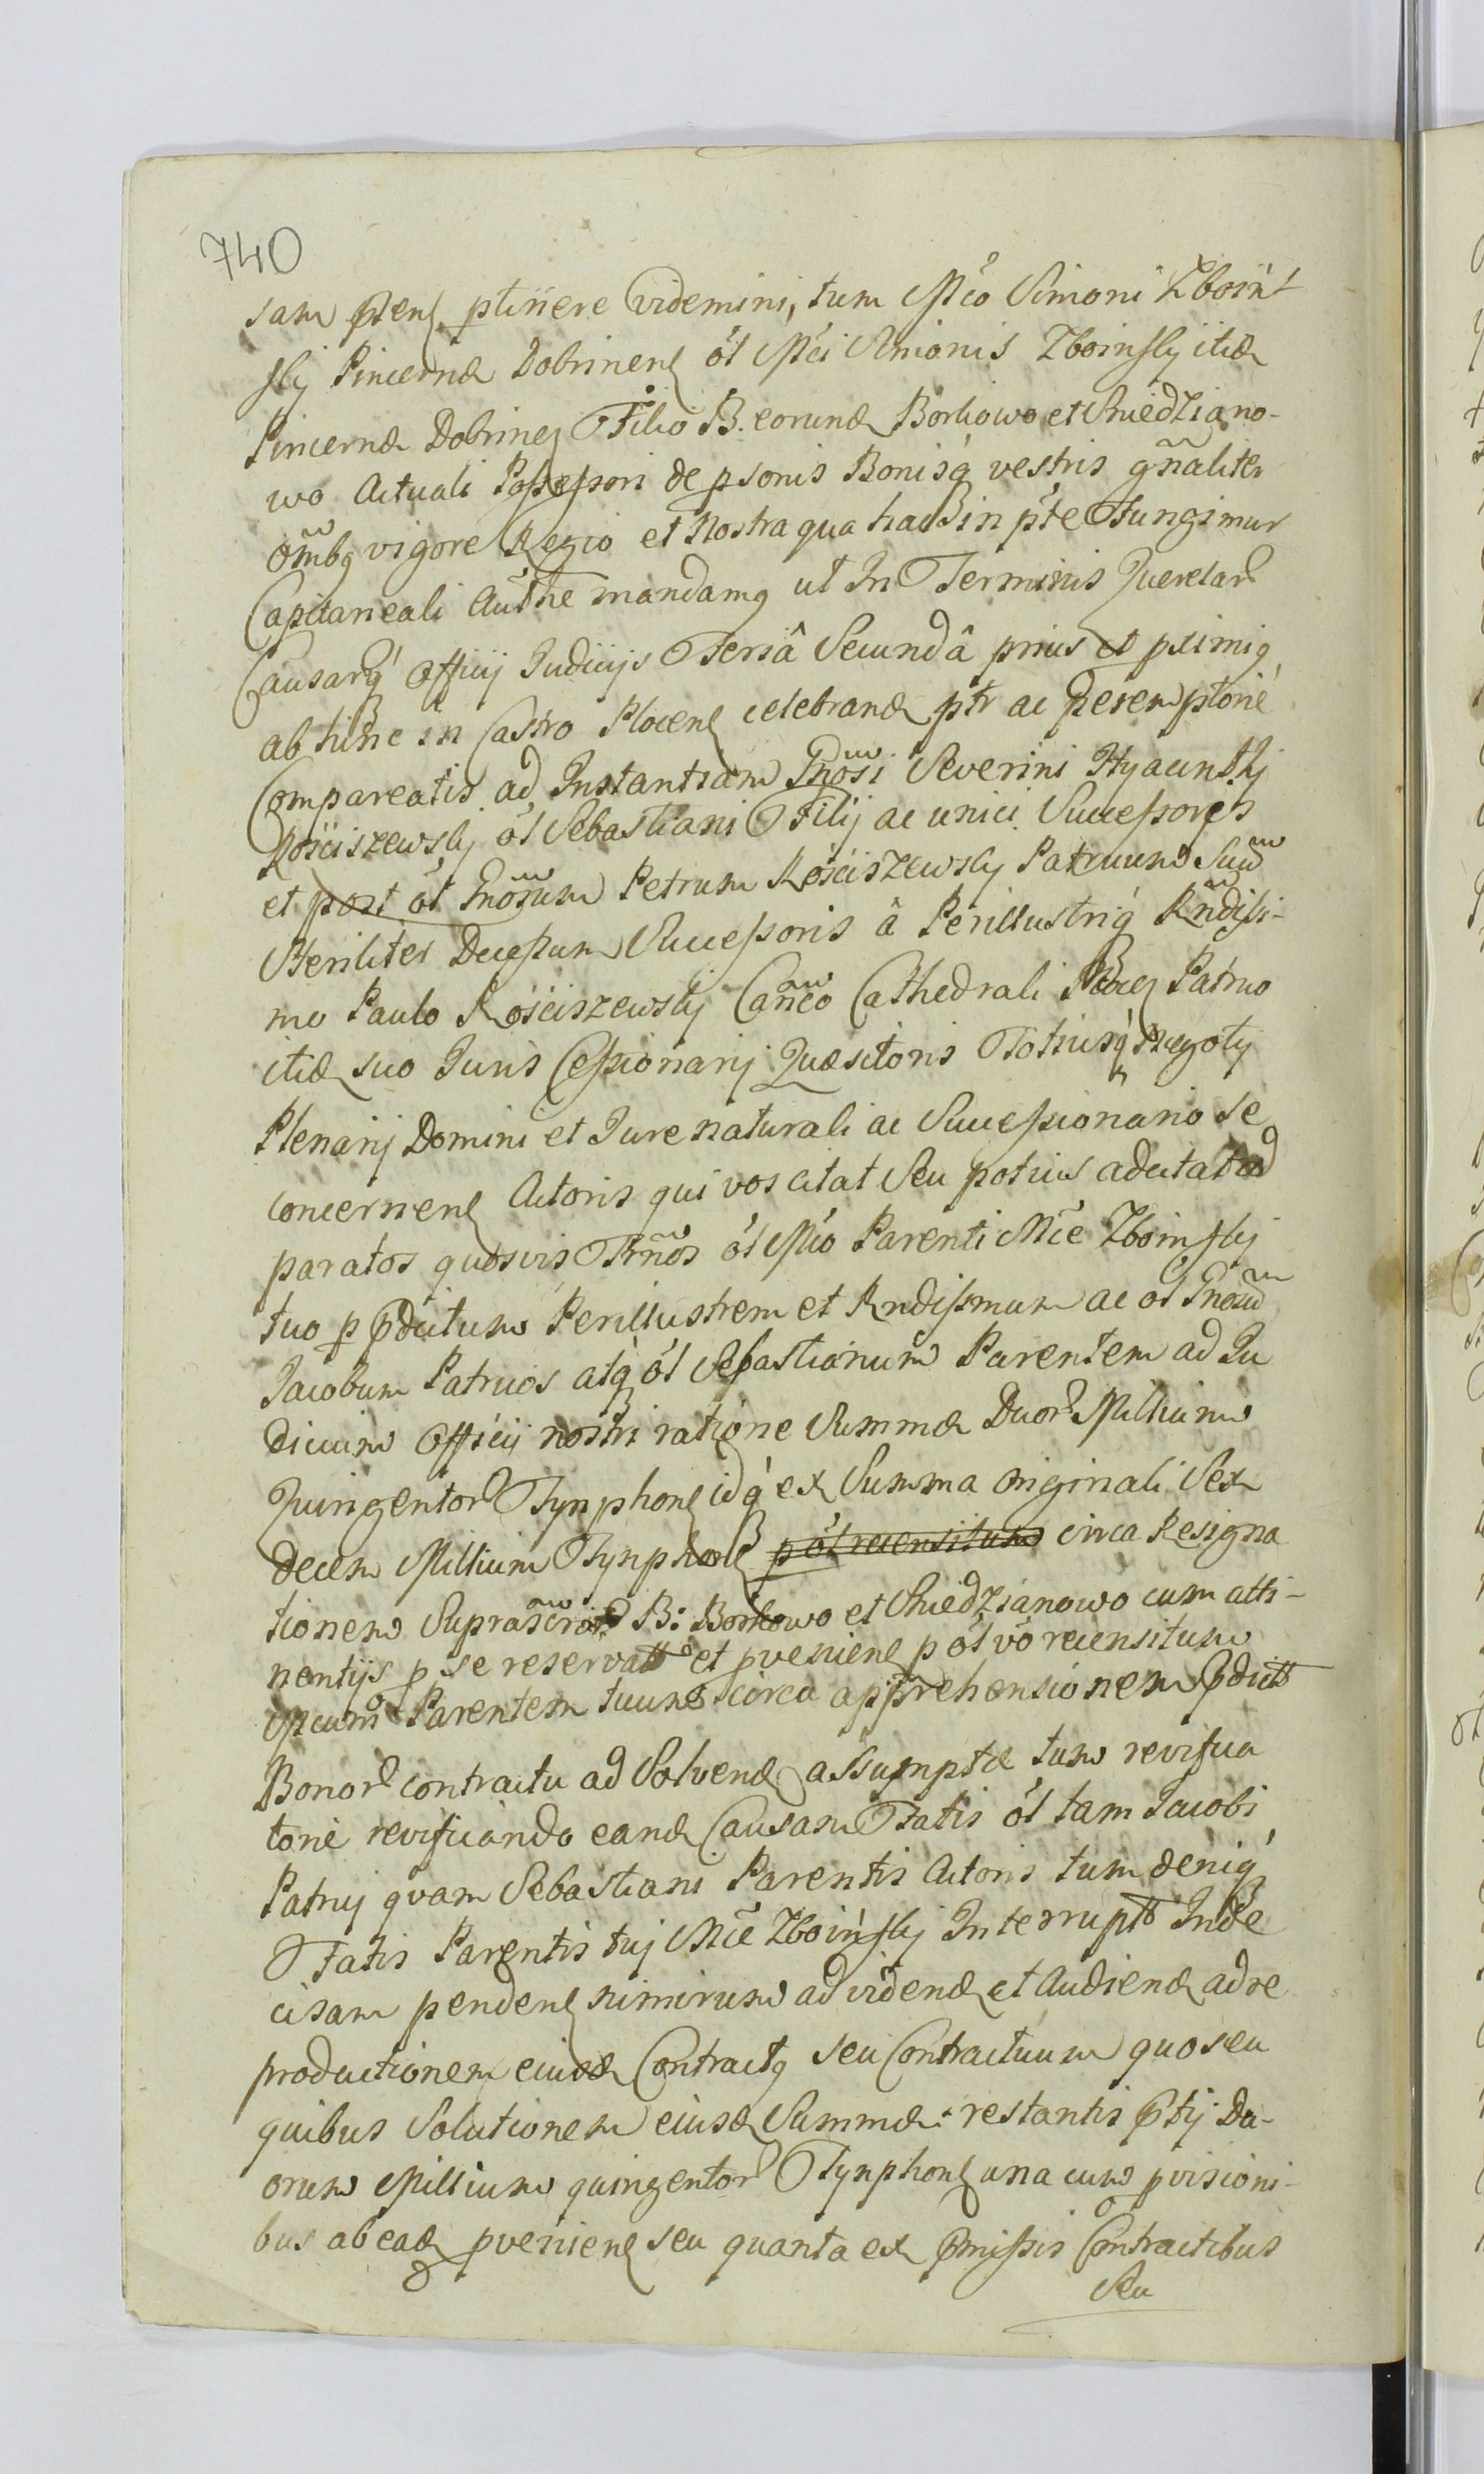 740
sam pten ptinere videmini, tum Mco Simoni Zboin
sky Pincernæ Dobrinen ol Mci Simonis Zboinsky itid
Pincernæ Dobrinen Filio B. eorund Borkowo et Chiedziano-
wo Actuali Possessori de psonis Bonisq vestris gnaliter
ombq vigore Regio et Nostra qua hac in pte Fungimur
Capitaneali Autthe mandamq ut In Terminis Querelar
Causarq Officij Judicijs Feriâ Secundâ prius et pximiq
ab hinc in Castro Plocen celebrand ptr ac peremptorie
Compareatis ad Instantiam Gnosi Severini Hyacinthi
Rościszewsky ol Sebastiani Filij ac unici Successores
et post ol Gnosum Petrum Rościszewsky Patruum Suum
Steriliter Decessum Successoris â Perillustriq Rndissi-
mo Paulo Rościszewsky Canco Cathedrali Plocen Patruo
itid suo Juris Cessionarij Quæsitoris Totiusq Negotij
Plenarij Domini et Jure naturali ac Successionario se
concernen Actoris qui vos citat Seu potius adcitat ad
paratos quosvis Trnos ol Mco Parenti Mce Zboinsky
tuo p pdictum Perillustrem et Rndissmum ac ol Gnosum
Jacobum Patruos atq ol Sebastianum Parentem ad Ju
dicium Officij nostri ratione Summæ Duor Millium
Quingentor Tynphon idq ex Summa originali Sex
decem Millium Tynphon p ol recensitum circa Resigna
tionem Suprascript B: Borkowo et Chiedzianowo cum atti-
nentijs p se reservatt et pvenien p ol vo recensitum
Mcum Parentem tuum circa apprehensionem pdictt
Bonor contractu ad Solvend assumptæ tum revisua
torie revisuando eand Causam Fatis ol tam Jacobi
Patruj quam Sebastiani Parentis Actoris tum deniq
Fatis Parentis tuj Mce Zboinsky Interruptt Inde
cisam penden nimirum ad vidend et Audiend ad re
productionem eiusd Contractq seu Contractuum quo seu
quibus Solutionem eiusd Summæ restantis ptij Du-
orum Millium quingentor Tynphon una cum pvisioni-
bus ab ead pvenien seu quanta ex pmissis Contractibus
Seu